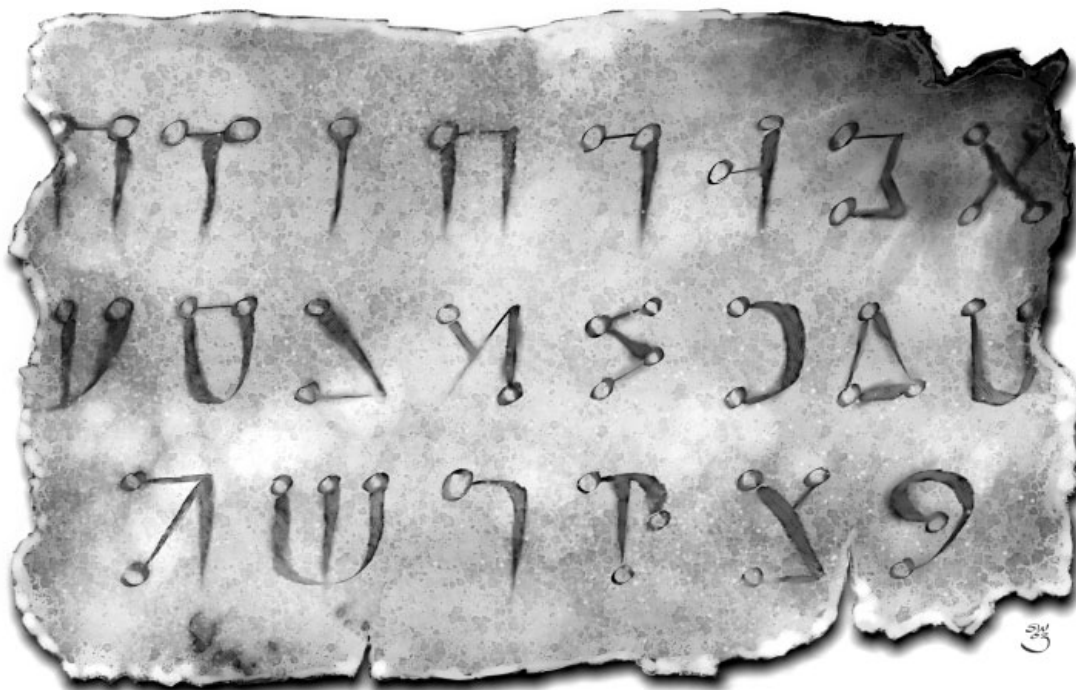 א ב ג ד ה ו ז ח
ט י כ ל מ נ ס ע
פ צ ק ר ש ת